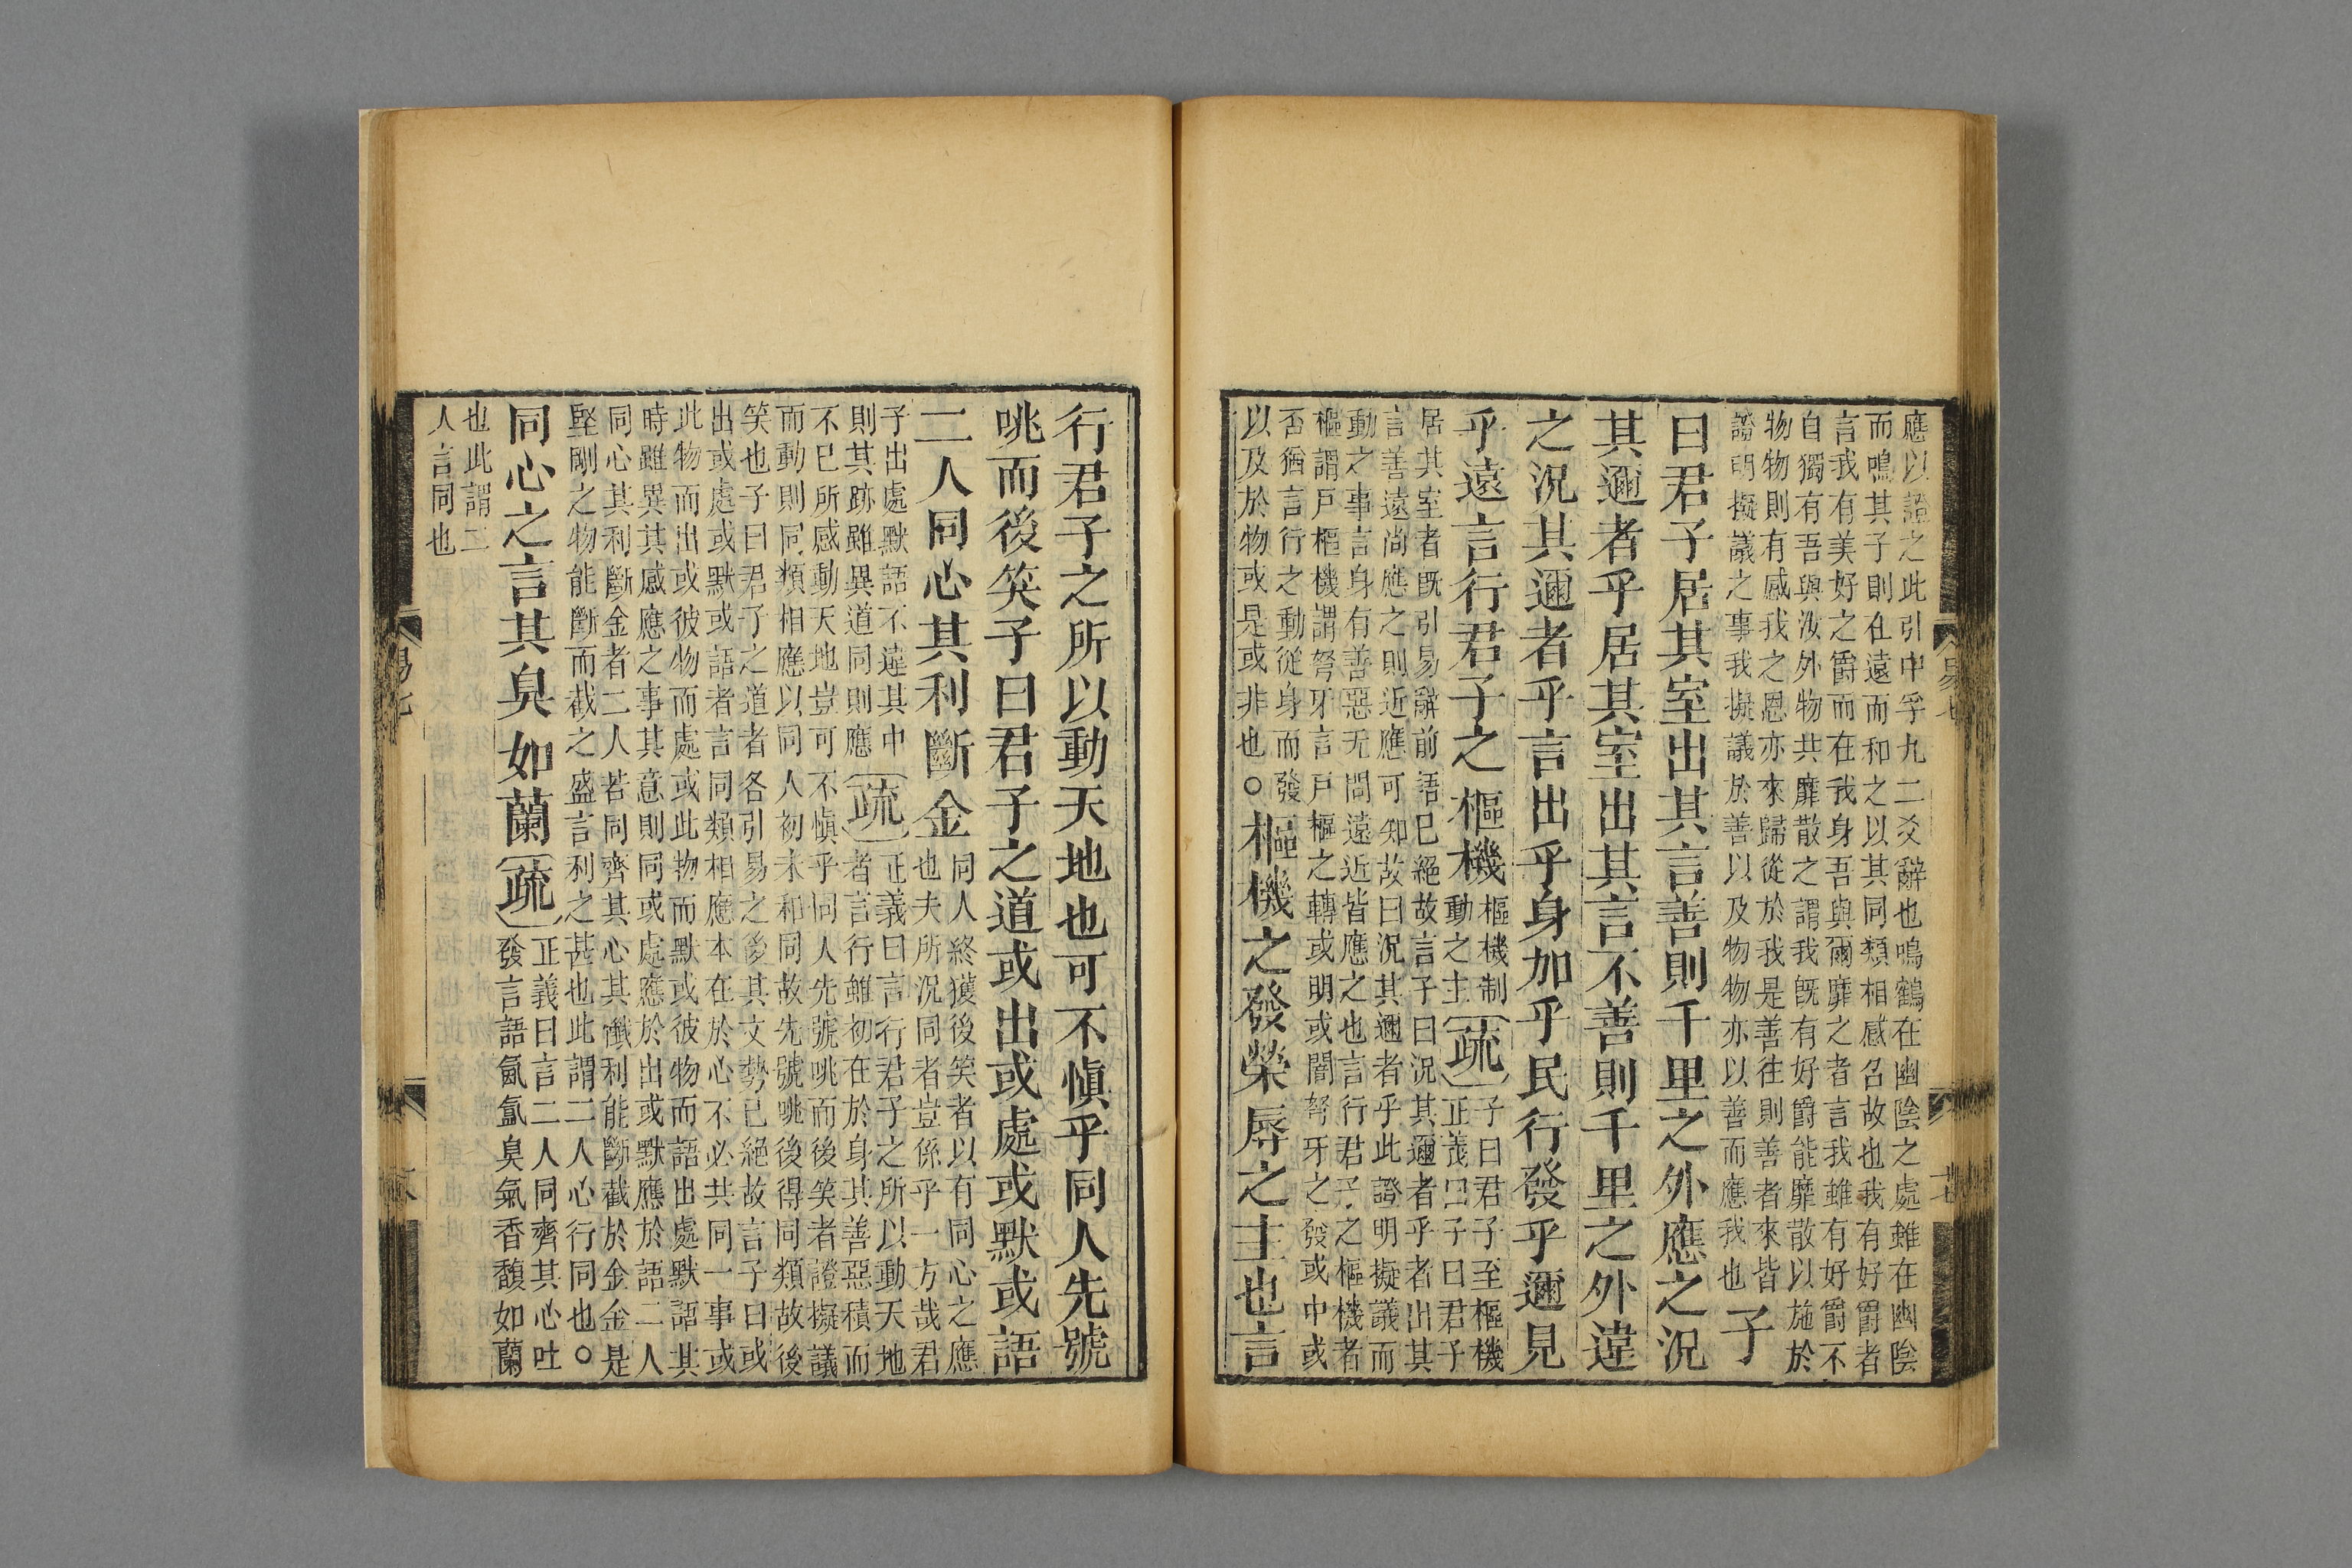 應以證之此引中孚九二爻辭也鳴鶴在幽陰之處雖在幽陰
而鳴其子則在遠而和之以其同類相感召故也我有好爵者
言我有美好之爵而在我身吾與爾靡之者言我雖有好爵不
自獨有吾與汝外物共靡散之謂我旣有好爵能靡散以施於
物物則有感我之恩亦來歸從於我是善往則善者來皆
證明擬議之事我擬議於善以及物物亦以善而應我也
子
曰君子居其室出其言善則千里之外應之況
其邇者乎居其室出其言不善則千里之外違
之況其邇者乎言出乎身加乎民行發乎邇見
乎遠言行君子之樞機
樞機制
動之主
疏
子曰君子至樞機
正義曰子曰君子
居其室者旣引易辭前語已絕故言子曰況其邇者乎者出其
言善遠尚應之則近應可知故曰況其邇者乎此證明擬議而
動之事言身有善惡无問遠近皆應之也言行君子之樞機者
樞謂戶樞機謂弩牙言戶樞之轉或明或闇弩牙之發或中或
否猶言行之動從身而發
以及於物或是或非也○
樞機之發榮辱之主也言
行君子之所以動天地也可不愼乎同人先號
咷而後笑子曰君子之道或出或處或默或語
二人同心其利斷金
同人終獲後笑者以有同心之應
也夫所況同者豈係乎一方哉君
子出處默語不違其中
則其跡雖異道同則應
疏
正義曰言行君子之所以動天地
者言行雖初在於身其善惡積而
不已所感動天地豈可不愼乎同人先號咷而後笑者證擬議
而動則同類相應以同人初未和同故先號咷後得同類故後
笑也子曰君子之道者各引易之後其文勢已絕故言子曰或
出或處或默或語者言同類相應本在於心不必共同一事或
此物而出或彼物而處或此物而默或彼物而語出處默語其
時雖異其感應之事其意則同或處應於出或默應於語二人
同心其利斷金者二人若同齊其心其纖利能斷截於金金是
堅剛之物能斷而截之盛言利之甚也此謂二人心行同也○
同心之言其臭如蘭
疏
正義曰言二人同齊其心吐
發言語氤氳臭氣香馥如蘭
也此謂二
人言同也
易七